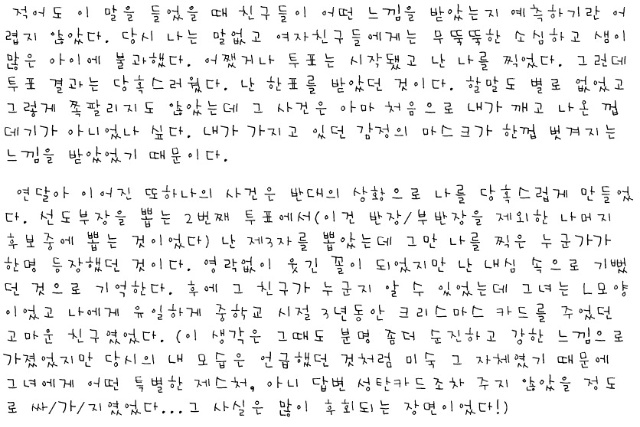 적어도 이 말을 들었을 때 친구들이 어떤 느낌을 받았는지 예측하기란 어
렵지 않았다. 당시 나는 말없고 여자친구들에게는 무뚝뚝한 소심하고 샘이
많은 아이에 불과했다. 어쨌거나 투표는 시작됐고 난 나를 찍었다. 그런데
투표 결과는 당혹스러웠다. 난 한표를 받았던 것이다. 할말도 별로 없었고
그렇게 쪽팔리지도 않았는데 그 사건은 아마 처음으로 내가 깨고 나온 껍
데기가 아니었나 싶다. 내가 가지고 있던 감정의 마스크가 한껍 벗겨지는
느낌을 받았었기 때문이다.
연달아 이어진 또하나의 사건은 반대의 상황으로 나를 당혹스럽게 만들었
다. 선도부장을 뽑는 2번째 투표에서(이건 반장/부반장을 제외한 나머지
후보중에 뽑는 것이었다) 난 제3자를 뽑았는데 그만 나를 찍은 누군가가
한명 등장했던 것이다. 영락없이 웃긴 꼴이 되었지만 난 내심 속으로 기뻤
던 것으로 기억한다. 후에 그 친구가 누군지 알 수 있었는데 그녀는 L모양
이었고 나에게 유일하게 중학교 시절 3년동안 크리스마스 카드를 주었던
고마운 친구였었다. (이 생각은 그때도 분명 좀더 순진하고 강한 느낌으로
가졌었지만 당시의 내 모습은 언급했던 것처럼 미숙 그 자체였기 때문에
그녀에게 어떤 특별한 제스처, 아니 답변 성탄카드조차 주지 않았을 정도
로 싸/가/지였었다...그 사실은 많이 후회되는 장면이었다!)